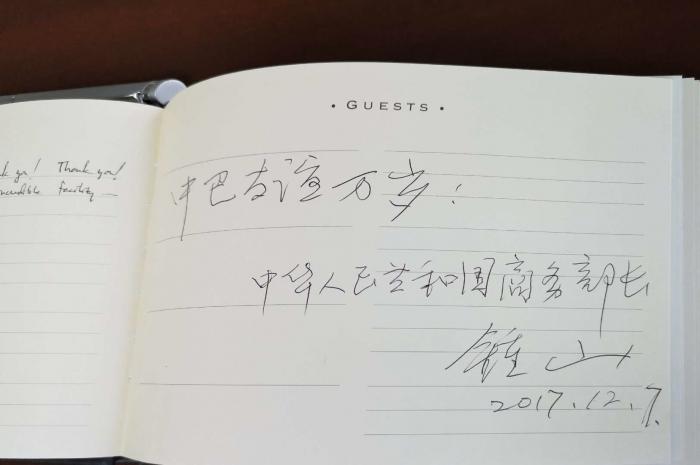 Thank you!
incredible facility —
• GUESTS •
中巴友谊万岁!
中华人民共和国商务部长
钟山
2017.12.7.